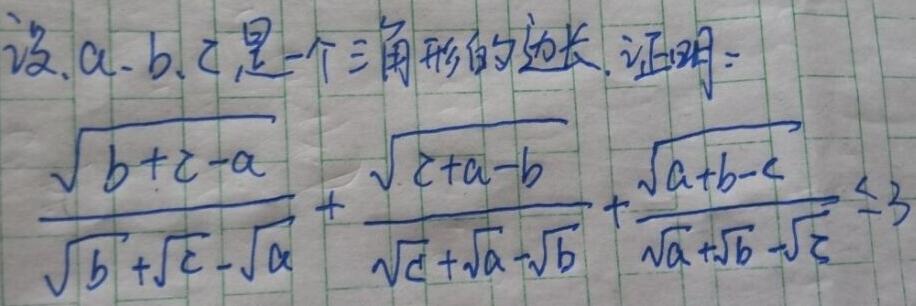 设.a.b.c是一个三角形的边长.证明:
\frac{\sqrt{b+c-a}}{\sqrt{b}+\sqrt{c}-\sqrt{a}}+\frac{\sqrt{c+a-b}}{\sqrt{c}+\sqrt{a}-\sqrt{b}}+\frac{\sqrt{a+b-c}}{\sqrt{a}+\sqrt{b}-\sqrt{c}}≤3